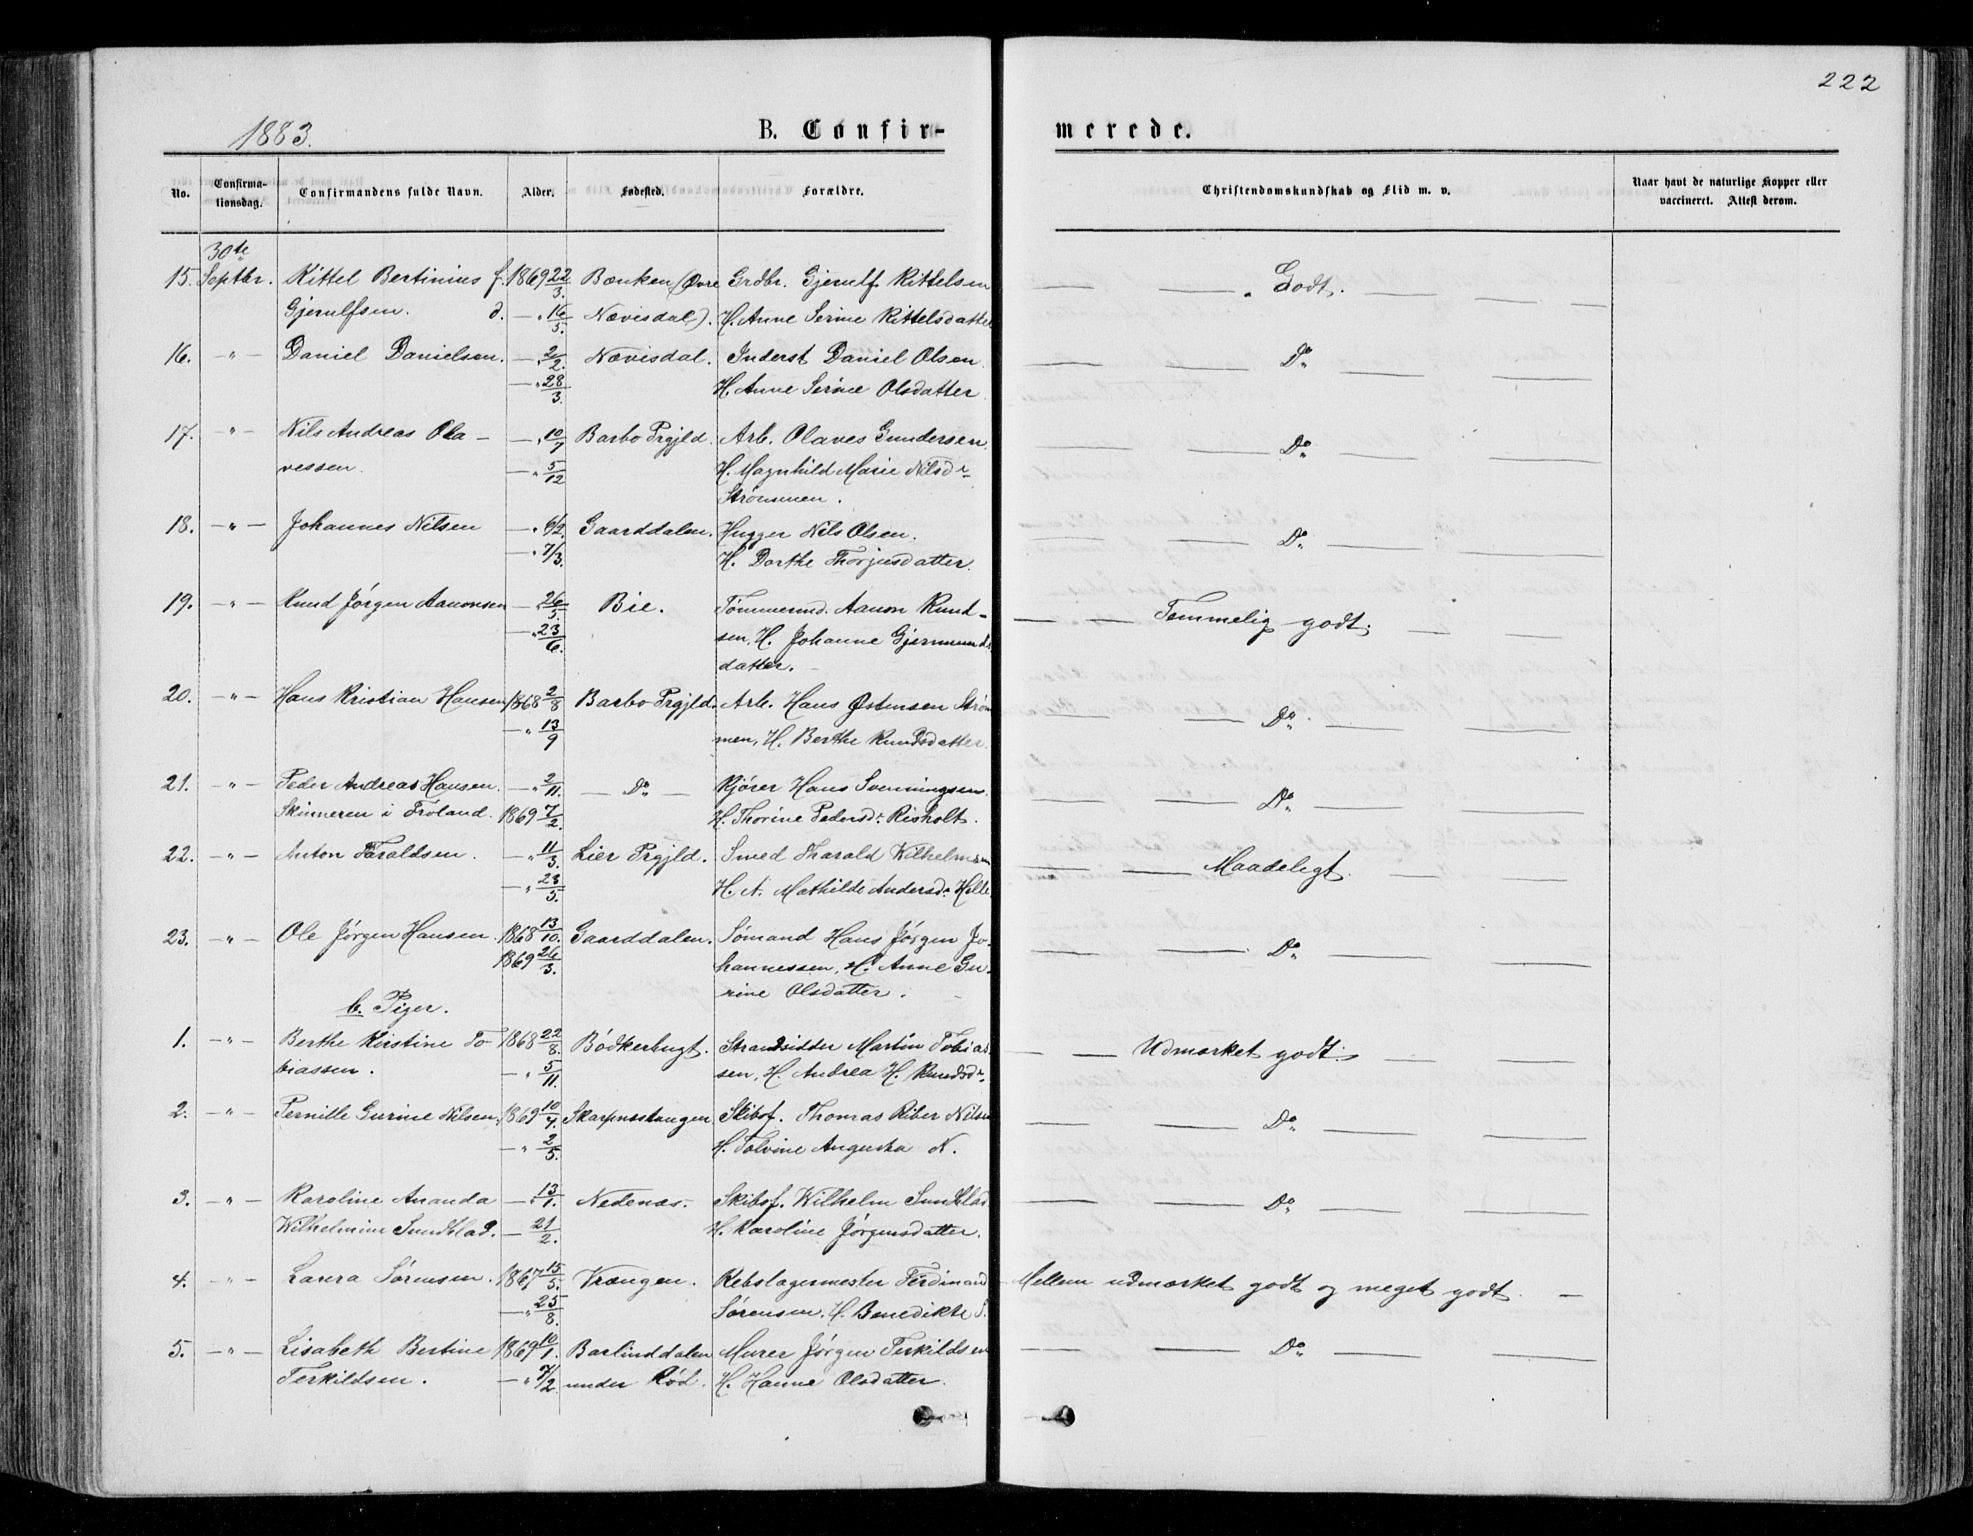 222
1883.
B. Confir-
merede.
No.
Confirma-
tionsdag.
Confirmandens fulde Navn.
Alder.
Fødested.
Forældre.
Christendomskundskab og Flid m. v.
Naar havt de naturlige Kopper eller
vaccineret. Attest derom.
30te
15. Septbr. Kittel Bertinius f. 1869 22/3. Bænken (Øvre Grdbr. Gjerulf Kittelsen — — Godt. — — —
Gjerulfsen. d. — " 16/5. Nævisdal). H. Anne Serine Kittelsdatter
16. — " — Daniel Danielsen. — " 2/2. Nævisdal. Inderst Daniel Olsen. — — Do — — —
— " 28/3. H. Anne Serine Olsdatter
17. — " — Nils Andreas Ola- — " 10/7 Barbo Prgjld. Arb. Olaves Gundersen, — — Do — — —
vessen. — " 5/12 H. Magnhild Marie Nilsdr
Strømmen.
18. — " — Johannes Nilsen — " 6/2. Gaarddalen. Hugger Nils Olsen. — — Do — — —
— " 7/3. H. Dorthe Thorjusdatter.
19. — " — Knud Jørgen Aanonsen — " 26/5. Bie. Tømmermd. Aanon Knud- — — Temmelig godt. —
— " 23/6. sen, H. Johanne Gjermunds
datter.
20. — " — Hans Kristian Hansen 1868 2/8 Barbo Prgjld. Arb. Hans Østensen Strøm — — Do — — —
— " 13/9 men, H. Berthe Knudsdatter.
21. — " — Peder Andreas Hansen. — " 2/11. — Do — Kjører Hans Svenningsen. — — Do — — —
Skinneren i Froland. 1869 7/2. H. Thorine Pedersdr Risholt.
22. — " — Anton Taraldsen. — " 11/3. Lier Prgjld. Smed Tharald Wilhelmsen — — Maadeligt. — —
— " 23/5. H. A. Mathilde Andersdr Helle
23. — " — Ole Jørgen Hansen. 1868 13/10. Gaarddalen. Sømand Hans Jørgen Jo- — — Do — — —
1869 26/3. hannessen, H. Anne Gu-
rine Olsdatter.
b. Piger.
1. — " — Berthe Kirstine To- 1868 22/8. Bødkerbugt. Strandsidder Martin Tobias- — — Udmærket godt. — — —
biassen. — " 5/11. sen, H. Andrea H. Knudsdr
2. — " — Pernille Gurine Nilsen, 1869 10/4. Skarpnestangen Skibsf. Thomas Riber Nilsen — — Do — — —
— " 2/5. H. Tolvine Augusta N.
3. — " — Karoline Ananda — " 13/1. Nedenæs. Skibsf. Wilhelm Sundblad — — Do — — —
Wilhelmine Sundblad. — 21/2. H. Karoline Jørgensdatter.
4. — " — Laura Sørensen. 1867 15/5. Vrængen. Rebslagermester Ferdinand Mellem udmærket godt og meget godt. —
— " 25/8. Sørensen, H. Benedikte S.
5. — " — Lisabeth Bertine 1869 10/1. Barlinddalen Murer Jørgen Terkildsen — — Do — — —
Terkildsen. — " 7/2 under Rød. H. Hanne Olsdatter.